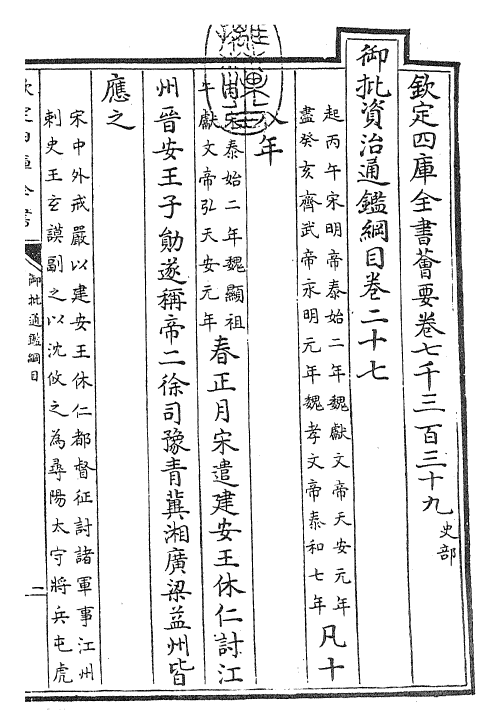 欽定四庫全書薈要卷七千三百三十九史部
御批資治通鑑綱目卷二十七
起丙午宋明帝泰始二年魏獻文帝天安元年
盡癸亥齊武帝永明元年魏孝文帝泰和七年
凡十
八年
宋泰始二年魏顯祖
午獻文帝弘天安元年
春正月宋遣建安王休仁討江
州晉安王子勛遂稱帝二徐司豫青冀湘廣梁益州皆
應之
宋中外戒嚴以建安王休仁都督征討諸軍事江州
刺史王玄謨副之以沈攸之為尋陽太守將兵屯虎
御批通鑑綱目
二